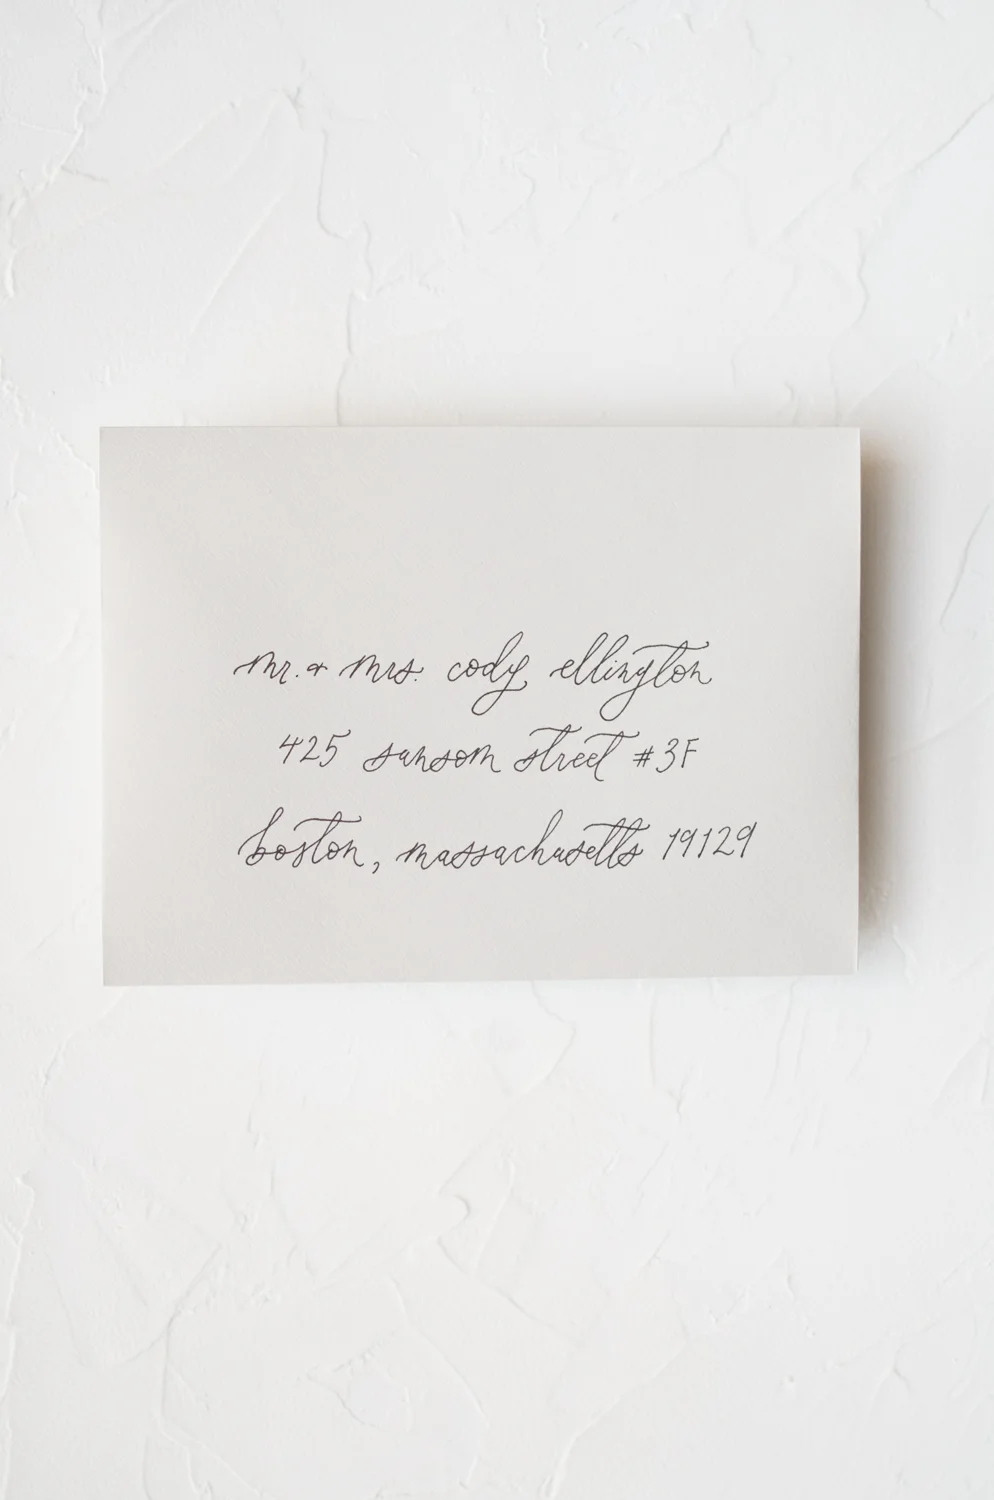 mr. & mrs. cody ellington
425 sansom street #3F
boston, massachusetts 19129